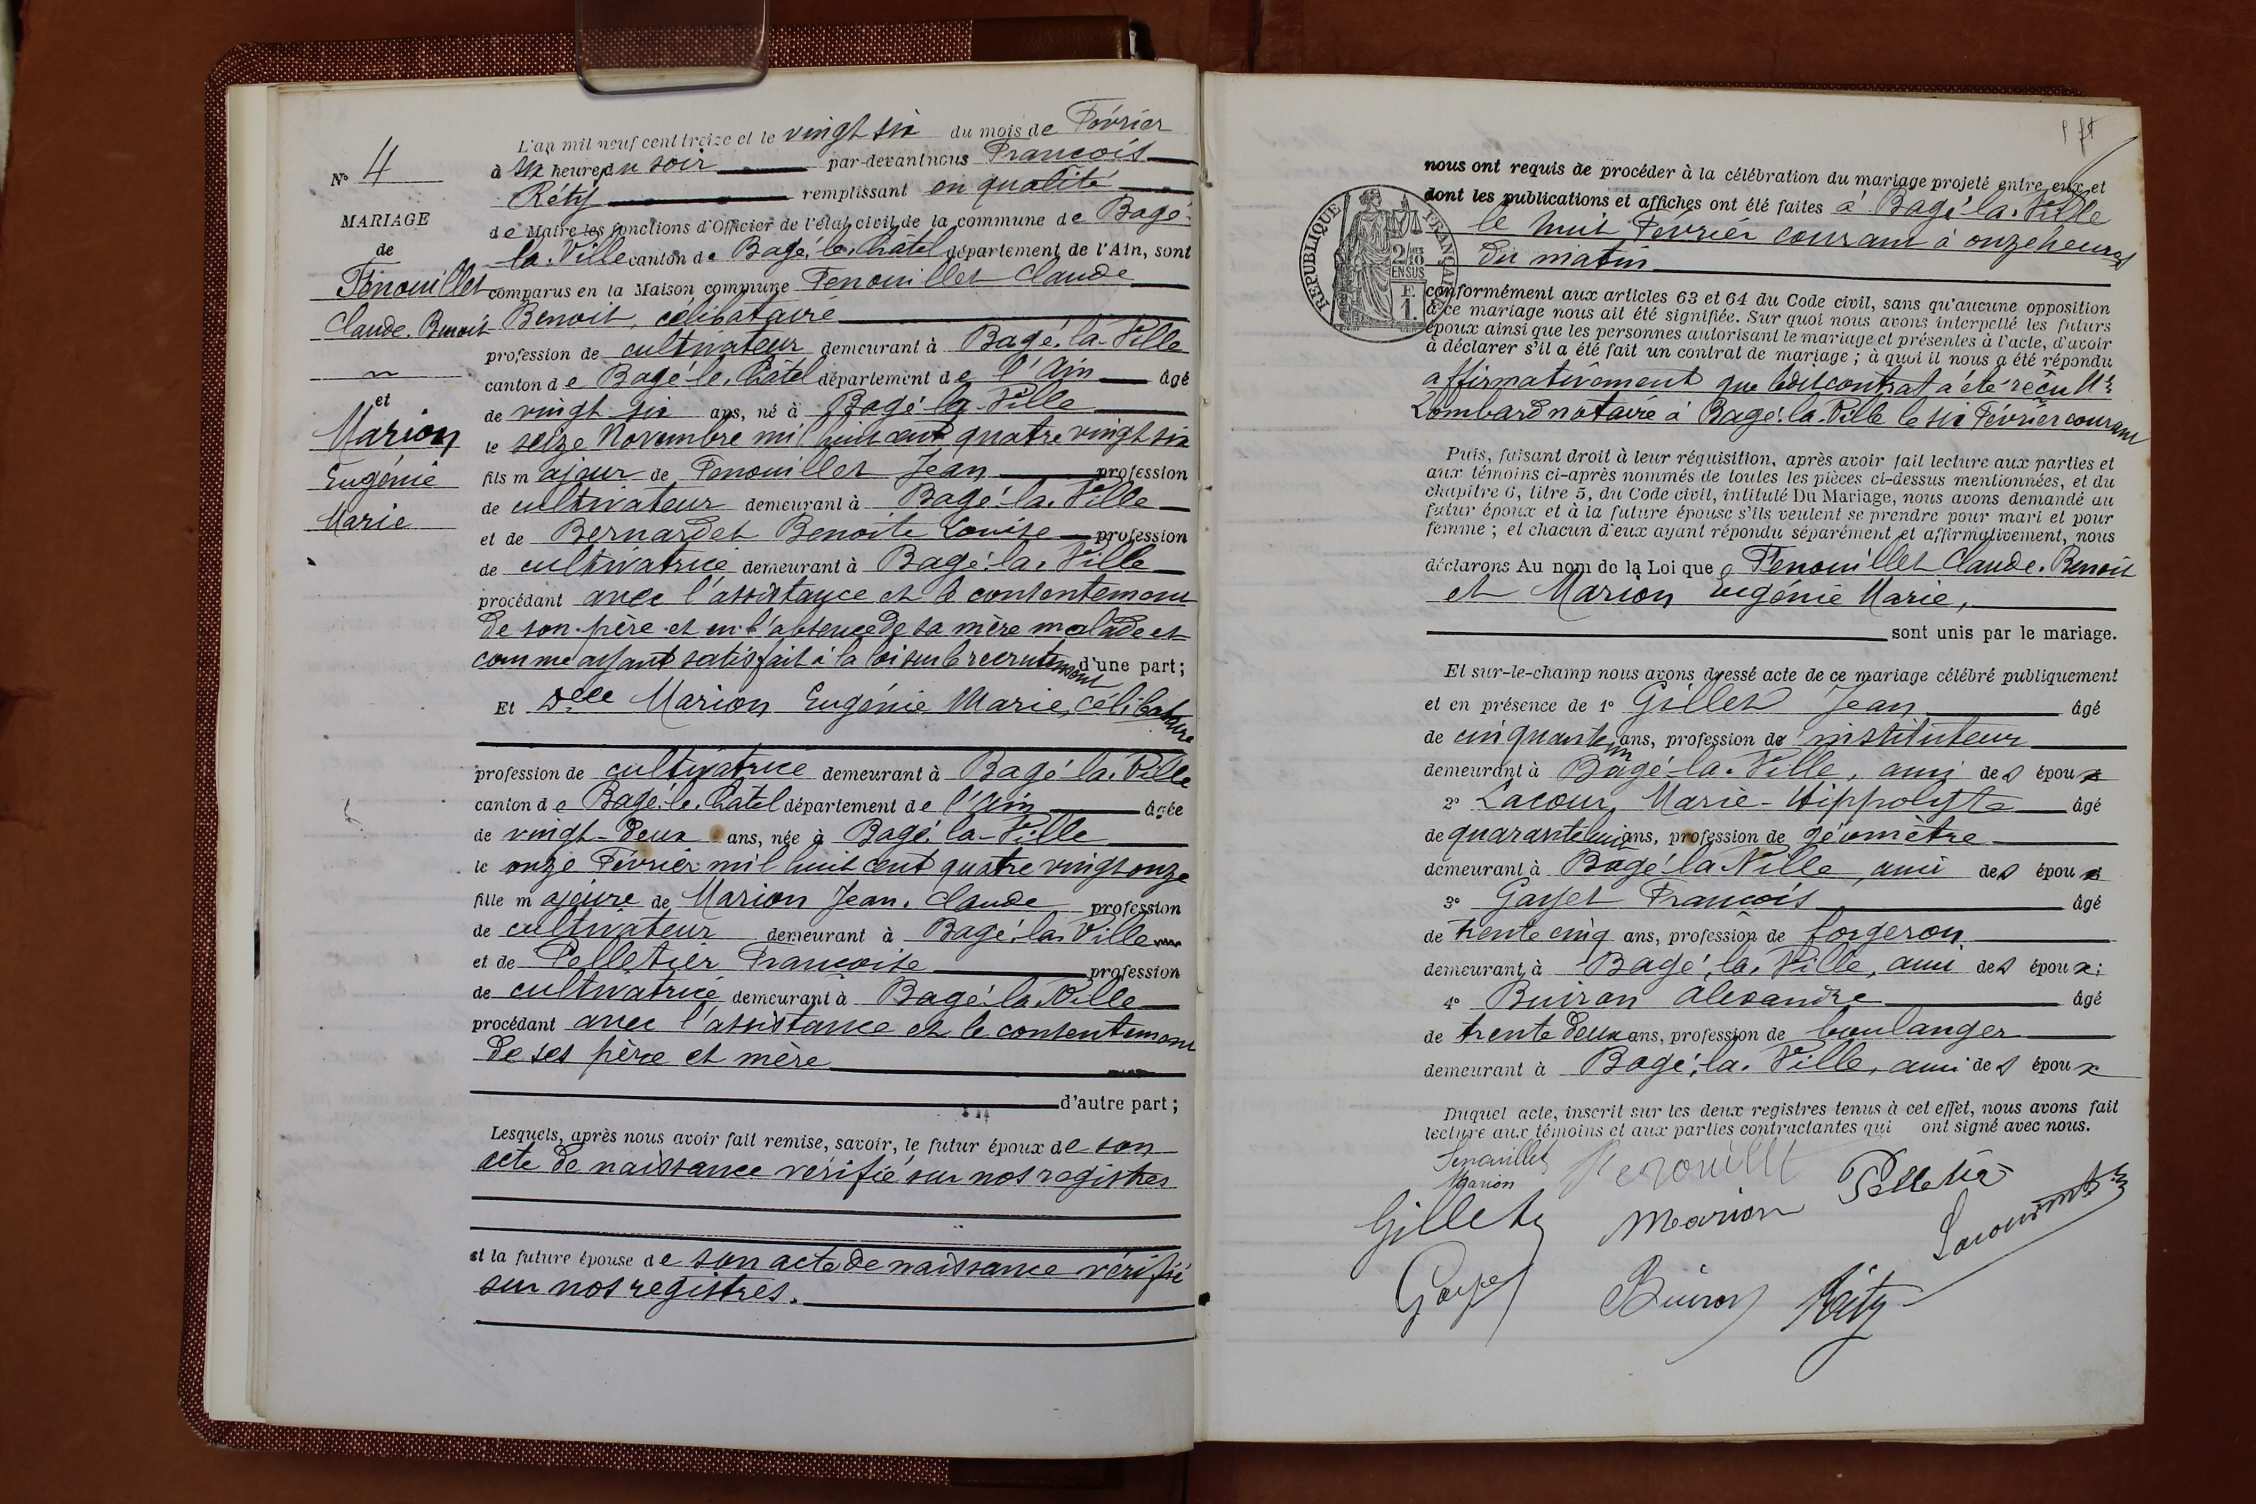 L'an mil neuf cent treize et le vingt six du mois de Février
à six heures du soir par-devant nous François
Réty remplissant en qualité
de Maire les fonctions d'Officier de l'état civil de la commune de Bagé-
la-Ville canton de Bagé-le-Châtel département de l'Ain, sont
comparus en la Maison commune Fenouillet Claude
Benoit, célibataire
profession de cultivateur demeurant à Bagé-la-Ville
canton de Bagé-le-Châtel département de l'Ain âgé
de vingt six ans, né à Bagé-la-Ville
le seize Novembre mil huit cent quatre vingt six
fils majeur de Fenouillet Jean profession
de cultivateur demeurant à Bagé-la-Ville
et de Bernardet Benoite Louise profession
de cultivatrice demeurant à Bagé-la-Ville
procédant avec l'assistance et le consentement
de son père et en l'absence de sa mère malade et
comme ayant satisfait à la loi sur le recrutement d'une part;
Et Delle Marion Eugénie Marie, célibataire
profession de cultivatrice demeurant à Bagé-la-Ville
canton de Bagé-le-Châtel département de l'Ain âgée
de vingt-deux ans, née à Bagé-la-Ville
le onze Février mil huit cent quatre vingt onze
fille majeure de Marion Jean-Claude profession
de cultivateur demeurant à Bagé-la-Ville
et de Pelletier Françoise profession
de cultivatrice demeurant à Bagé-la-Ville
procédant avec l'assistance et le consentement
de ses père et mère
d'autre part;
Lesquels, après nous avoir fait remise, savoir, le futur époux de son
acte de naissance vérifié sur nos registres
et la future épouse de son acte de naissance vérifié
sur nos registres.
No 4
MARIAGE
de
Fenouillet
Claude-Benoit
et
Marion
Eugénie
Marie
nous ont requis de procéder à la célébration du mariage projeté entre eux et
dont les publications et affiches ont été faites à Bagé-la-Ville
le huit Février courant à onze heures
du matin
RÉPUBLIQUE FRANÇAISE
2/10
EN SUS
1 F.
conformément aux articles 63 et 64 du Code civil, sans qu'aucune opposition
à ce mariage nous ait été signifiée. Sur quoi nous avons interpellé les futurs
époux ainsi que les personnes autorisant le mariage et présentes à l'acte, d'avoir
à déclarer s'il a été fait un contrat de mariage; à quoi il nous a été répondu
affirmativement que ledit contrat a été reçu Me
Lombard notaire à Bagé-la-Ville le six Février courant
Puis, faisant droit à leur réquisition, après avoir fait lecture aux parties et
aux témoins ci-après nommés de toutes les pièces ci-dessus mentionnées, et du
chapitre 6, titre 5, du Code civil, intitulé Du Mariage, nous avons demandé au
futur époux et à la future épouse s'ils veulent se prendre pour mari et pour
femme; et chacun d'eux ayant répondu séparément et affirmativement, nous
déclarons Au nom de la Loi que Fenouillet Claude-Benoit
et Marion Eugénie Marie,
sont unis par le mariage.
Et sur-le-champ nous avons dressé acte de ce mariage célébré publiquement
et en présence de 1° Gillet Jean âgé
de cinquante un ans, profession de instituteur
demeurant à Bagé-la-Ville, ami des époux
2° Lacour, Marie-Hippolyte âgé
de quarante huit ans, profession de géomètre
demeurant à Bagé-la-Ville, ami des époux
3° Gayet François âgé
de trente cinq ans, profession de forgeron
demeurant à Bagé-la-Ville, ami des époux;
4° Buiron Alexandre âgé
de trente deux ans, profession de boulanger
demeurant à Bagé-la-Ville, ami des époux
Duquel acte, inscrit sur les deux registres tenus à cet effet, nous avons fait
lecture aux témoins et aux parties contractantes qui ont signé avec nous.
Fenouillet Fenouillet Pelletier
Marion
Gillet Marion Lacour
Gayet Buiron Réty